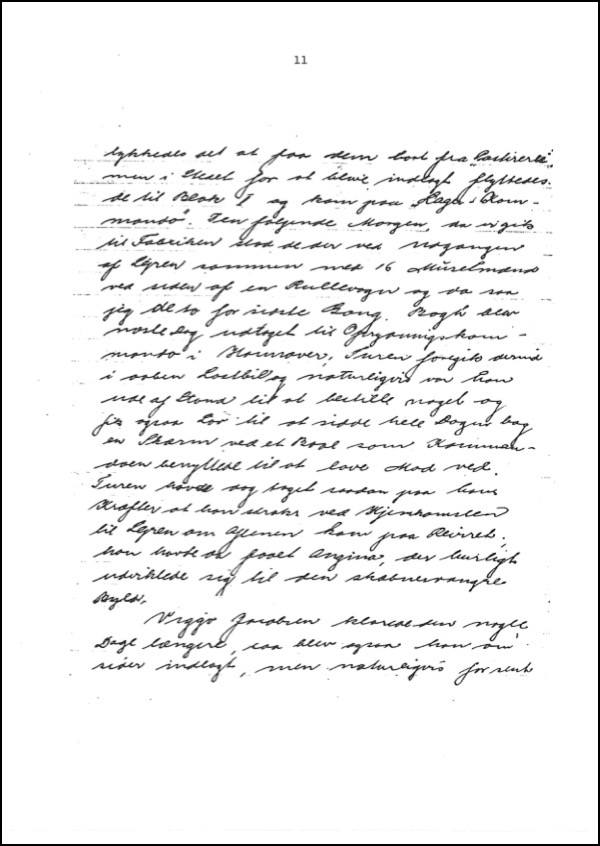 11
lykkedes det at faa dem bort fra "Lastirerie",
men i Stedet for at blive indlagt flyttedes
de til Blok I og kom paa "Lager Kom-
mando". Den følgende Morgen, da vi gik
til Fabriken stod de der ved Udgangen
af Lejren sammen med 16 Muselmænd
ved siden af en Rullevogn og da saa
jeg de to for sidste Gang. Bogh blev
næste Dag udtaget til Oprydningskom-
mando i Hannover. Turen foregik dermed
i aaben Lastbil og naturligvis var han
ude af Stand til at bestille noget og
fik ogsaa Lov til at sidde hele Dagen bag
en Skærm ved et Baal som Komman-
doen benyttede til at lave Mad ved.
Turen havde dog taget saadan paa hans
Kræfter at han straks ved Hjemkomsten
til Lejren om Aftenen kom paa Reviret,
han havde da faaet Angina, der hurtigt
udviklede sig til den skæbnesvangre
Byld.
Viggo Jacobsen klarede den nogle
Dage længere, saa blev ogsaa han om-
sider indlagt, men naturligvis for sent